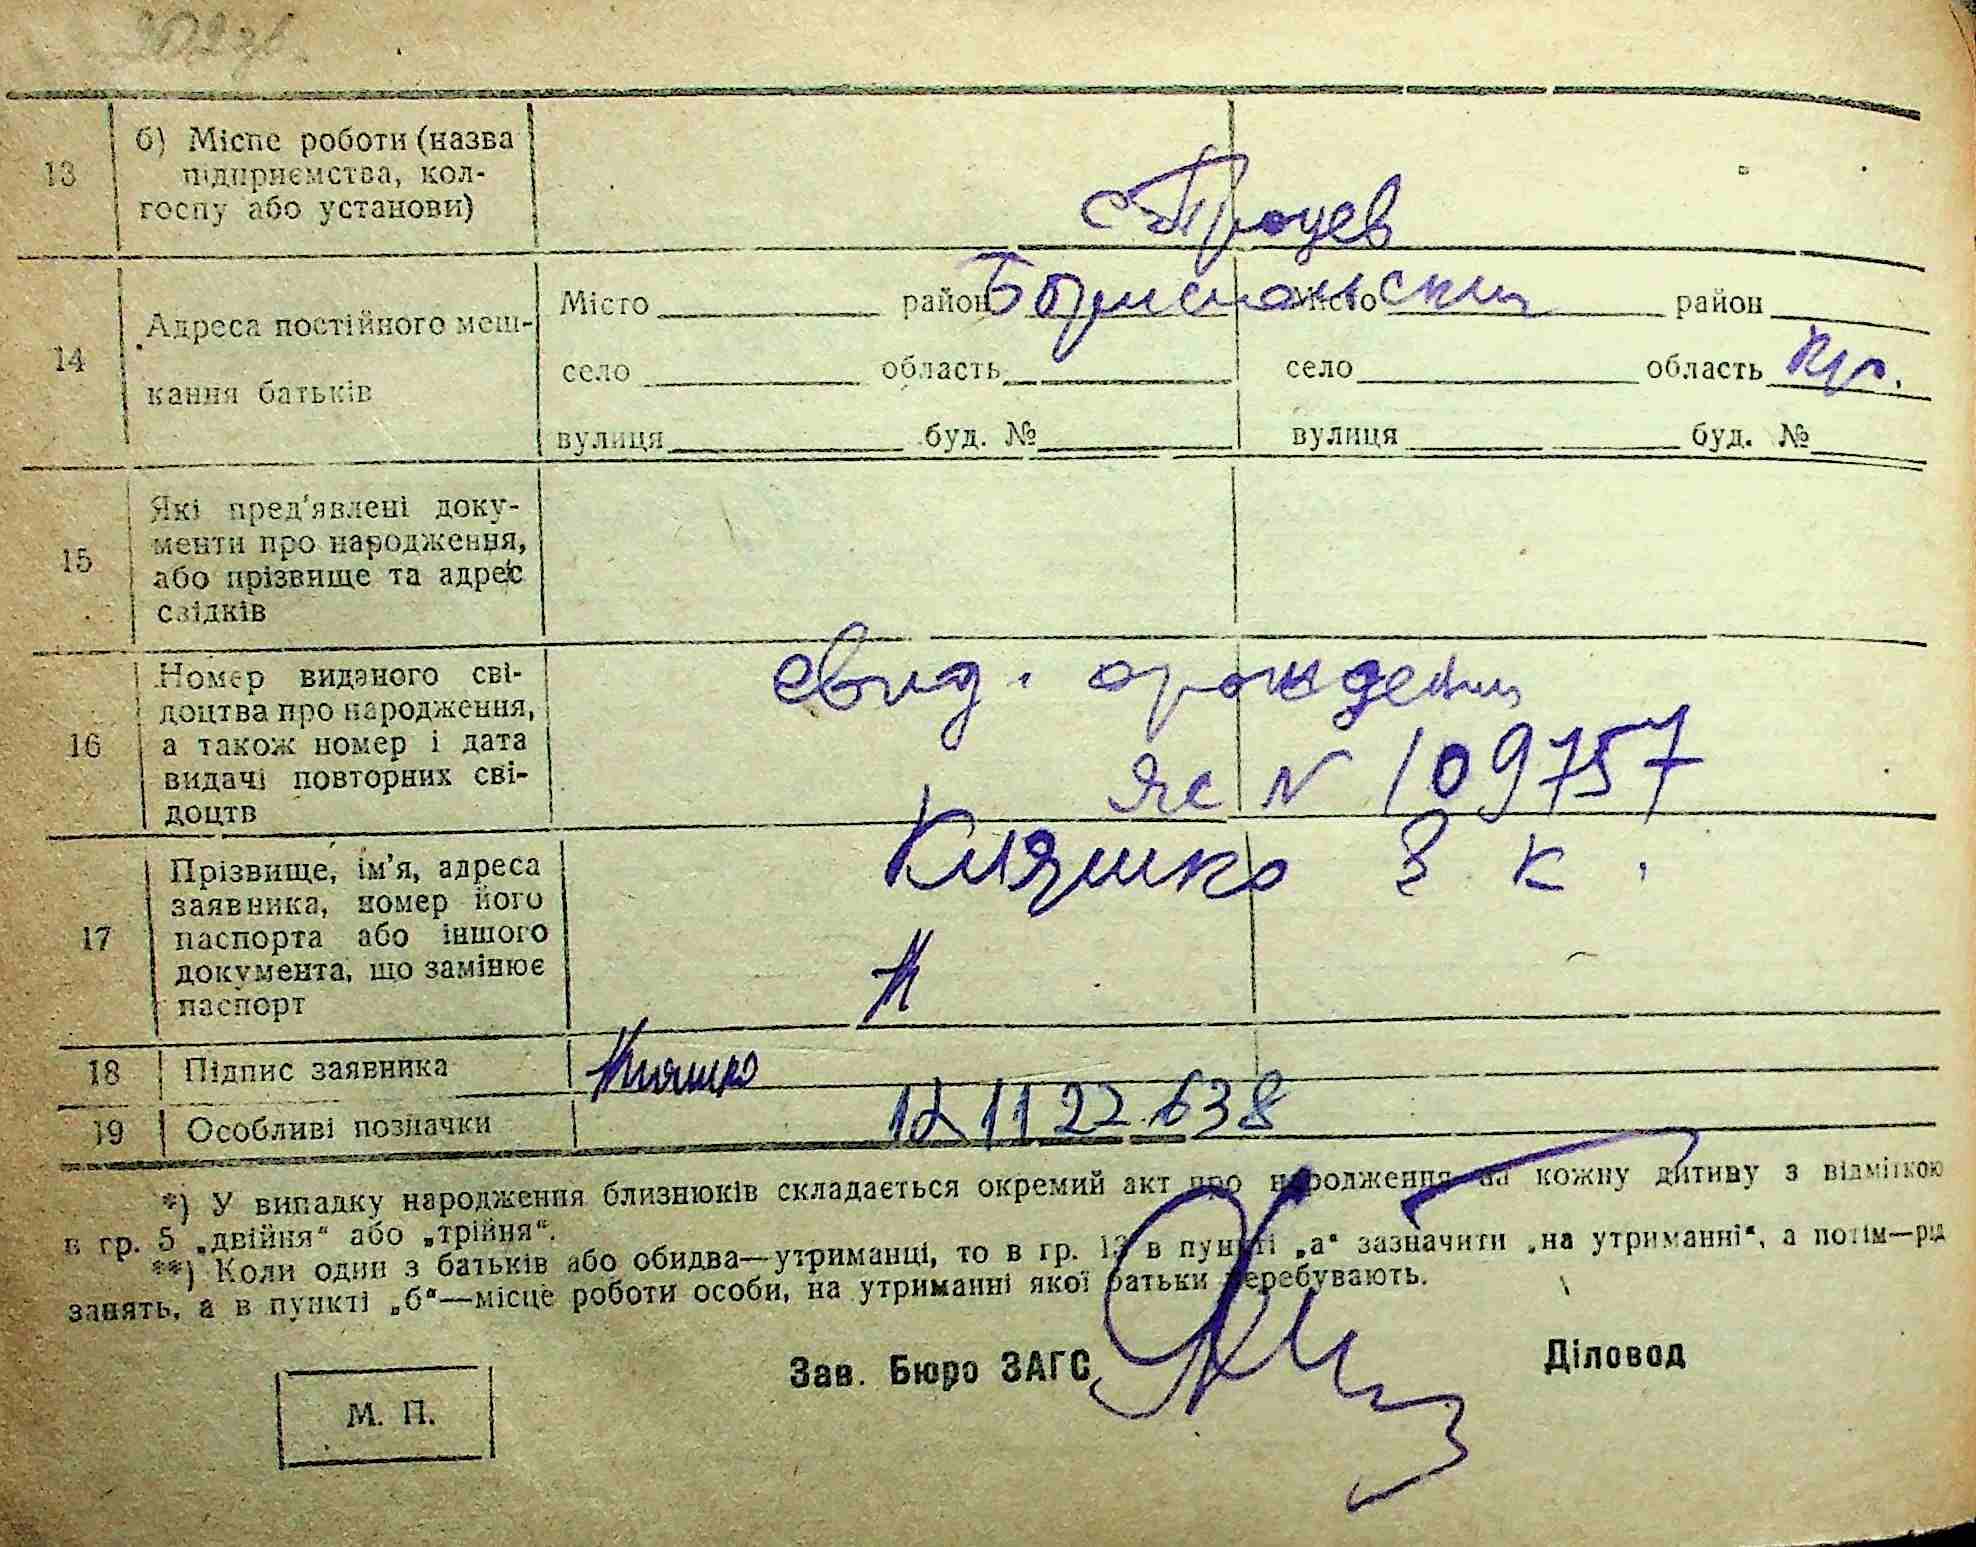 13 б) Місце роботи (назва
підприємства, кол-
госпу або установи)
с Процев
14 Адреса постійного меш-
кання батьків
Місто район Бориспольский Місто район
село область село область
вулиця буд. № вулиця буд. №
15 Які пред'явлені доку-
менти про народження,
або прізвище та адрес
свідків
16 Номер виданого сві-
доцтва про народження,
а також номер і дата
видачі повторних сві-
доцтв
свид. о рождении
яс N 109757
17 Прізвище, ім'я, адреса
заявника, номер його
паспорта або іншого
документа, що замінює
паспорт
Кияшко З К.
18 Підпис заявника Кияшко
19 Особливі позначки
*) У випадку народження близнюків складається окремий акт про народження на кожну дитину з відміткою
в гр. 5 „двійня“ або „трійня“.
**) Коли один з батьків або обидва—утриманці, то в гр. 13 в пункті „а“ зазначити „на утриманні“, а потім—рід
занять, а в пункті „б“—місце роботи особи, на утриманні якої батьки перебувають.
Зав. Бюро ЗАГС Діловод
М. П.